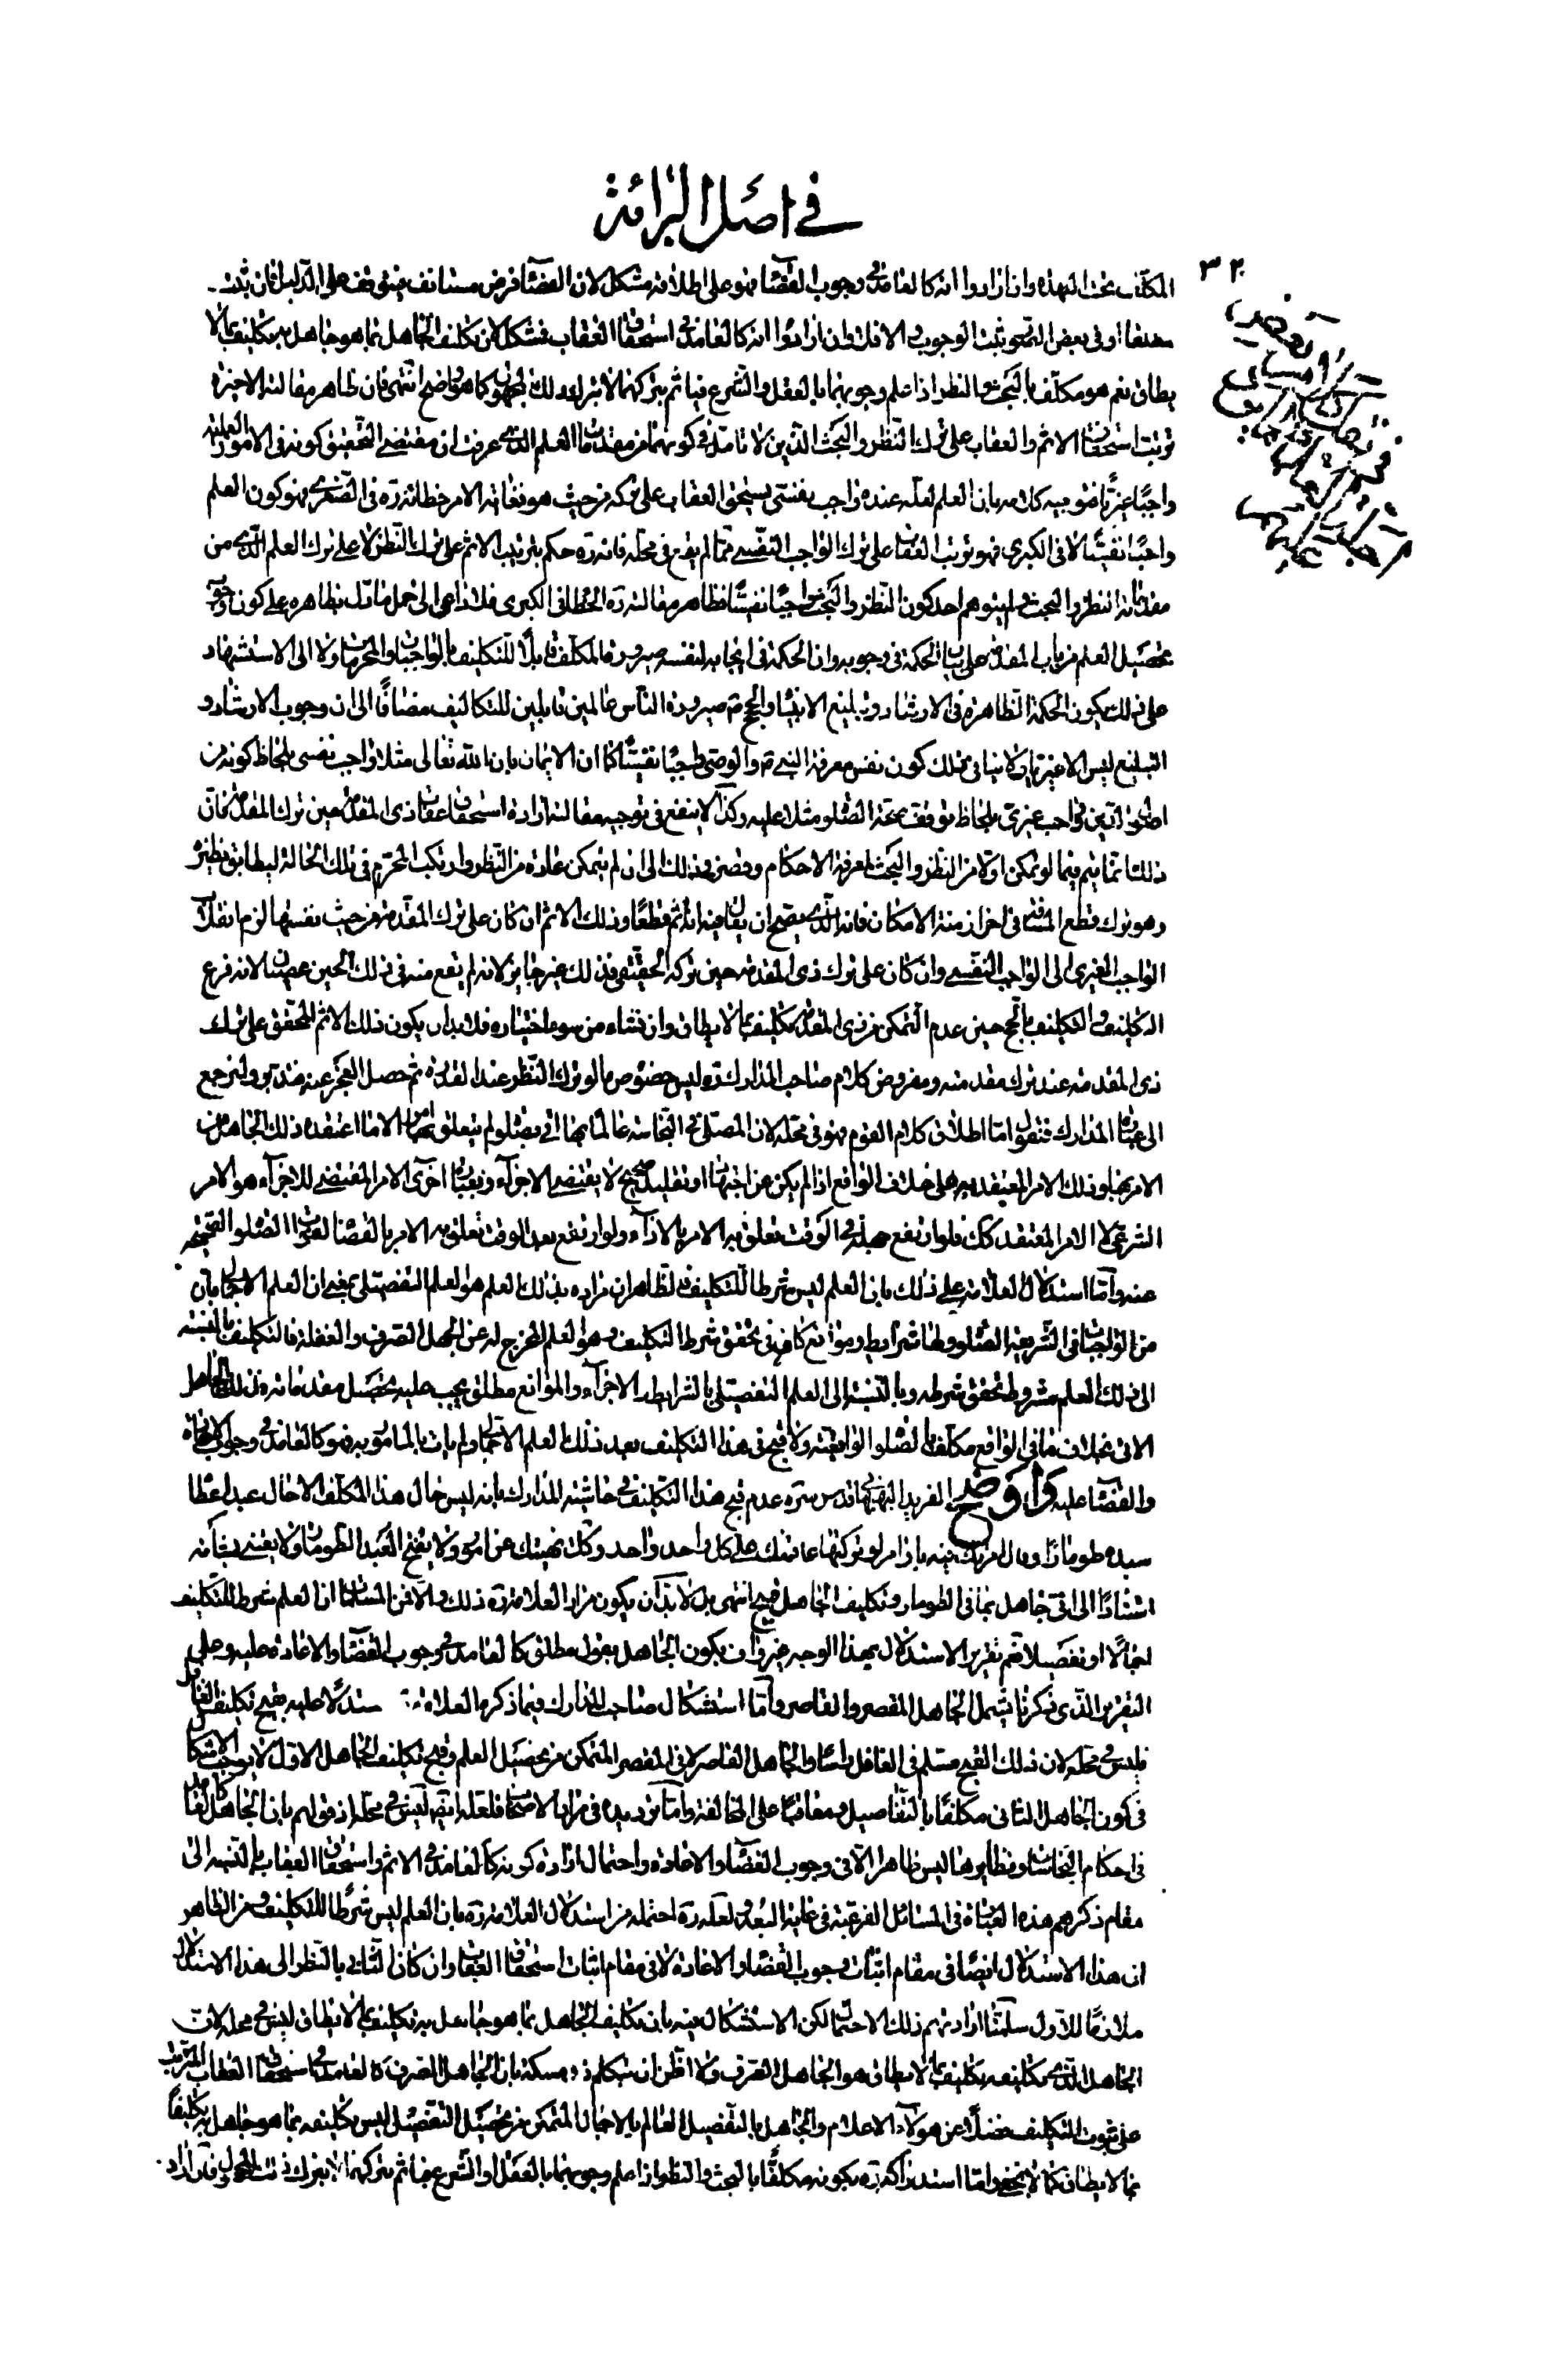 في اصل البرائة
٣٢٠
المكلف تحت العهدة وان ارادوا انه كالعامد في وجوب القضاء فهو على اطلاقه مشكل لان القضاء فرض مستانف فيتوقف على الدليل فان ثبت
مطلقا او في بعض الصور ثبت الوجوب والا فلا وان ارادوا انه كالعامد في استحقاق العقاب فمشكل لان تكليف الجاهل بما هو جاهل به تكليف بما لا
يطاق نعم هو مكلف بالبحث والنظر اذا علم وجوبهما بالعقل والشرع فياثم بتركهما لا بترك ذلك المجهول كما هو واضح انتهى فان ظاهر مقالته الاخيرة
ترتب استحقاق الاثم والعقاب على ترك النظر والبحث الذين لا تامل في كونهما من مقدمات العلم الذي عرفت ان مقتضى التحقيق كونه في الامور العملية
واجبا غيريا كلامه بان العلم لعله عنده واجب نفسي يستحق العقاب على تركه من حيث هو فغاية الامر خطائه ره في الصغرى وهو كون العلم
واجبا نفسيا لا في الكبرى وهو ترتب العقاب على ترك الواجب النفسي مما لم يقع في محله فانه ره حكم بترتب الاثم على ترك النظر لا على ترك العلم الذي من
مقدماته النظر والبحث ولم يتوهم احد كون النظر والبحث واجبا نفسيا فظاهر مقالته ره الخطا في الكبرى فلا داعي الى حمل ما دل بظاهره على كون وجوب
تحصيل العلم من باب المقدمة على بيان الحكمة في وجوبه وان الحكمة في ايجابه لنفسه صيرورة المكلف قابلا للتكليف بالواجبات والمحرمات ولا الى الاستشهاد
على ذلك بكون الحكمة الظاهرة في الارشاد وتبليغ الانبياء والحجج صيرورة الناس عالمين قابلين للتكاليف مضافا الى ان وجوب الارشاد و
التبليغ ليس الا غيريا ولا ينافي ذلك كون نفس معرفة النبي والوصي واجبا نفسيا كما ان الايمان بان الله تعالى مثلا واجب نفسي بلحاظ كونه من
اصول الدين وواجب غيري بلحاظ توقف صحة الصلو مثلا عليه وكذا لا ينفع في توجيه مقالته ارادة استحقاق عقاب ذي المقدمة حين ترك المقدمة فان
ذلك انما يتم فيما لو تمكن اولا من النظر والبحث لمعرفة الاحكام وقصر في ذلك الى ان لم يتمكن عادة من النظر وارتكب المحرم في تلك الحالة ليطابق نظيره
وهو ترك قطع المسافة في اخر ازمنة الامكان فانه الذي يصح ان يقال فيه انه اثم قطعا وذلك الاثم ان كان على ترك المقدمة من حيث نفسها لزم انقلاب
الواجب الغيري الى الواجب النفسي وان كان على ترك ذي المقدمة حين تركه الحقيقي فذلك غير جايز لانه لم يقع منه في ذلك الحين عصيان لانه فرع
التكليف والتكليف بالحج حين عدم التمكن من ذي المقدمة تكليف بما لا يطاق وان نشاء من سوء اختياره فلا بد ان يكون ذلك الاثم المحقق على ترك
ذي المقدمة عند ترك مقدمته ومفروض كلام صاحب المدارك ره ليس خصوص ما لو ترك النظر عند القدرة ثم حصل العجز عنه فتدبر ولنرجع
الى عبارة المدارك فنقول اما اطلاق كلام القوم فهو في محله لان المصلي في النجاسة عالما بها اتى بصلو لم يتعلق بها امر الا ما اعتقده ذلك الجاهل من
الامر بها وذلك الامر المعتقد به على خلاف الواقع اذا لم يكن عن اجتهاد او تقليد صحيح لا يقتضي الاجزاء وبعبارة اخرى الامر المقتضي للاجزاء هو الامر
الشرعي لا الامر المعتقد كك فلو ارتفع جهله في الوقت تعلق به الامر بالاداء ولو ارتفع بعد الوقت تعلق به الامر بالقضاء لفوات الصلو الصحيحة
عنه واما استدلال العلامة على ذلك بان العلم ليس شرطا للتكليف فالظاهر ان مراده بذلك العلم هو العلم التفصيلي بمعنى ان العلم الاجمالي بان
من الواجبات في الشريعة الصلو ولها شرايط وموانع كاف في تحقق شرط التكليف وهو العلم المخرج له عن الجهل الصرف والغفلة فالتكليف بالنسبة
الى ذلك العلم مشروط تحقق شرطه وبالنسبة الى العلم التفصيلي بالشرايط والاجزاء والموانع مطلق يجب عليه تحصيل مقدماته فذلك الجاهل
الاتي بخلاف ما في الواقع مكلف بالصلو الواقعية ولا قبح في هذا التكليف بعد ذلك العلم الاجمالي ولم يات بالمامور به فهو كالعامد في وجوب الاعادة
والقضاء عليه واوضح الفريد البهبهاني قدس سره عدم قبح هذا التكليف في حاشية المدارك بانه ليس حال هذا المكلف الا حال عبد اعطاه
سيده طومارا وقال امرتك فيه باوامر لو تركتها عاقبتك على كل واحد واحد وكك نهيتك عن امور ولا يفتح العبد الطومار ولا يعتني بشانه
استنادا الى اني جاهل بما في الطومار وتكليف الجاهل قبيح انتهى بل لا بد ان يكون مراد العلامة ره ذلك والا فمن المسلمات ان العلم شرط للتكليف
اجمالا او تفصيلا فتم تقرير الاستدلال بهذا الوجه غير وان بكون الجاهل بقول مطلق كالعامد في وجوب القضاء والاعادة عليه وعلى
التقرير الذي ذكرنا يشمل الجاهل المقصر والقاصر واما استشكال صاحب المدارك فيما ذكره العلامة مستدلا عليه بقبح تكليف الغافل
فليس في محله لان ذلك القبح مسلم في الغافل راسا والجاهل القاصر لا في المقصر المتمكن من تحصيل العلم وقبح تكليف الجاهل الاول لا يوجب الاشكال
في كون الجاهل الثاني مكلفا بالتفاصيل ومعاقبا على المخالفة واما ترديده في مراد الاصحاب فلعله ايضا ليس في محله اذ قولهم بان الجاهل كالعامد
في احكام النجاسات ونظايرها ليس ظاهرا الا في وجوب القضاء والاعادة واحتمال ارادة كونه كالعامد في الاثم واستحقاق العقاب بالنسبة الى
مقام ذكرهم هذه العبارة في المسائل الفرعية في غاية البعد ولعله ره احتمله من استدلال العلامة ره بان العلم ليس شرطا للتكليف ومن الظاهر
ان هذا الاستدلال ايضا في مقام اثبات وجوب القضاء والاعادة لا في مقام اثبات استحقاق العقاب وان كان الثاني بالنظر الى هذا الاستدلال
ملازما للاول سلمنا ارادتهم ذلك الاحتمال لكن الاستشكال فيه بان تكليف الجاهل بما هو جاهل به تكليف بما لا يطاق ليس في محله لان
الجاهل الذي تكليفه تكليف بما لا يطاق هو الجاهل الصرف ولا اظن ان يتكلم ذو مسكة بان الجاهل الصرف كالعامد في استحقاق العقاب المترتب
على ثبوت التكليف فضلا عن هؤلاء الاعلام والجاهل بالتفصيل العالم بالاجمال المتمكن من تحصيل التفصيل ليس تكليفه بما هو جاهل به تكليفا
بما لا يطاق كما لا يخفى واما استدراكه ره بكونه مكلفا بالبحث والنظر اذا علم وجوبهما بالعقل او الشرع فياثم بتركهما لا بترك ذلك المجهول فان اراد